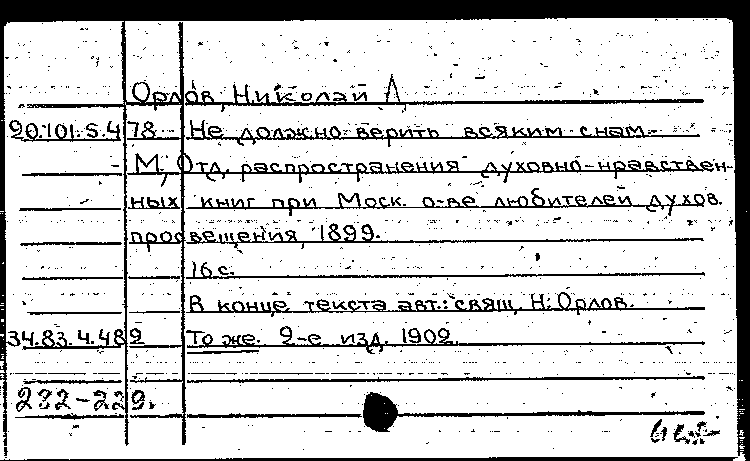 Орлов, Николай Л.
20.101.5.478 - Не должно верить всяким снам.-
- М., Отд. распространения духовно-нравствен-
ных книг при Моск. о-ве любителей духов.
просвещения, 1899.
16 с.
В конце текста авт.: свящ. Н. Орлов.
34.83.4.482 То же. 2-е изд. 1902.
232-229.